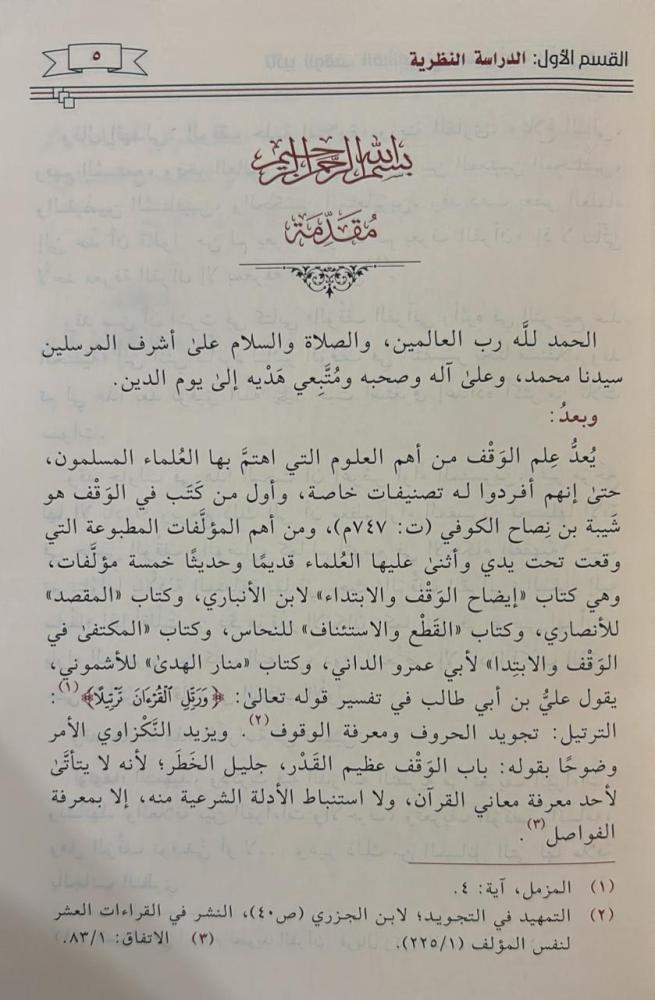 القسم الأول: الدراسة النظرية
٥
بسم الله الرحمن الرحيم
مُقَدِّمَة
الحمد للَّه رب العالمين، والصلاة والسلام علىٰ أشرف المرسلين
سيدنا محمد، وعلىٰ آله وصحبه ومُتَّبِعي هَدْيه إلىٰ يوم الدين.
وبعدُ:
يُعدُّ عِلم الوَقْف من أهم العلوم التي اهتمَّ بها العُلماء المسلمون،
حتىٰ إنهم أفـردوا لـه تصنيفات خاصـة، وأول مـن كَتَب في الوَقْف هو
شَيبة بن نِصاح الكوفي (ت: ٧٤٧م)، ومن أهم المؤلَّفات المطبوعة التي
وقعت تحت يدي وأثنىٰ عليها العُلماء قديمًا وحديثًا خمسة مؤلَّفات،
وهي كتاب «إيضاح الوَقْف والابتداء» لابن الأنباري، وكتاب «المقصد»
للأنصاري، وكتاب «القَطْع والاستئناف» للنحاس، وكتاب «المكتفىٰ في
الوَقْف والابتِدا» لأبي عمرو الداني، وكتاب «منار الهدىٰ» للأشموني،
يقول عليُّ بن أبي طالب في تفسير قوله تعالىٰ: ﴿وَرَتِّلِ ٱلْقُرْءَانَ تَرْتِيلًا﴾(١):
الترتيل: تجويد الحروف ومعرفة الوقوف(٢). ويزيد النَّكْزاوي الأمر
وضوحًا بقوله: باب الوَقْف عظيم القَدْر، جليل الخَطَر؛ لأنه لا يتأتَّىٰ
لأحد معرفة معاني القرآن، ولا استنباط الأدلة الشرعية منه، إلا بمعرفة
الفواصل(٣).
(١) المزمل، آية: ٤.
(٢) التمهيد في التجويد؛ لابن الجزري (ص٤٠)، النشر في القراءات العشر
لنفس المؤلف (٢٢٥/١). (٣) الاتفاق: ٨٣/١.